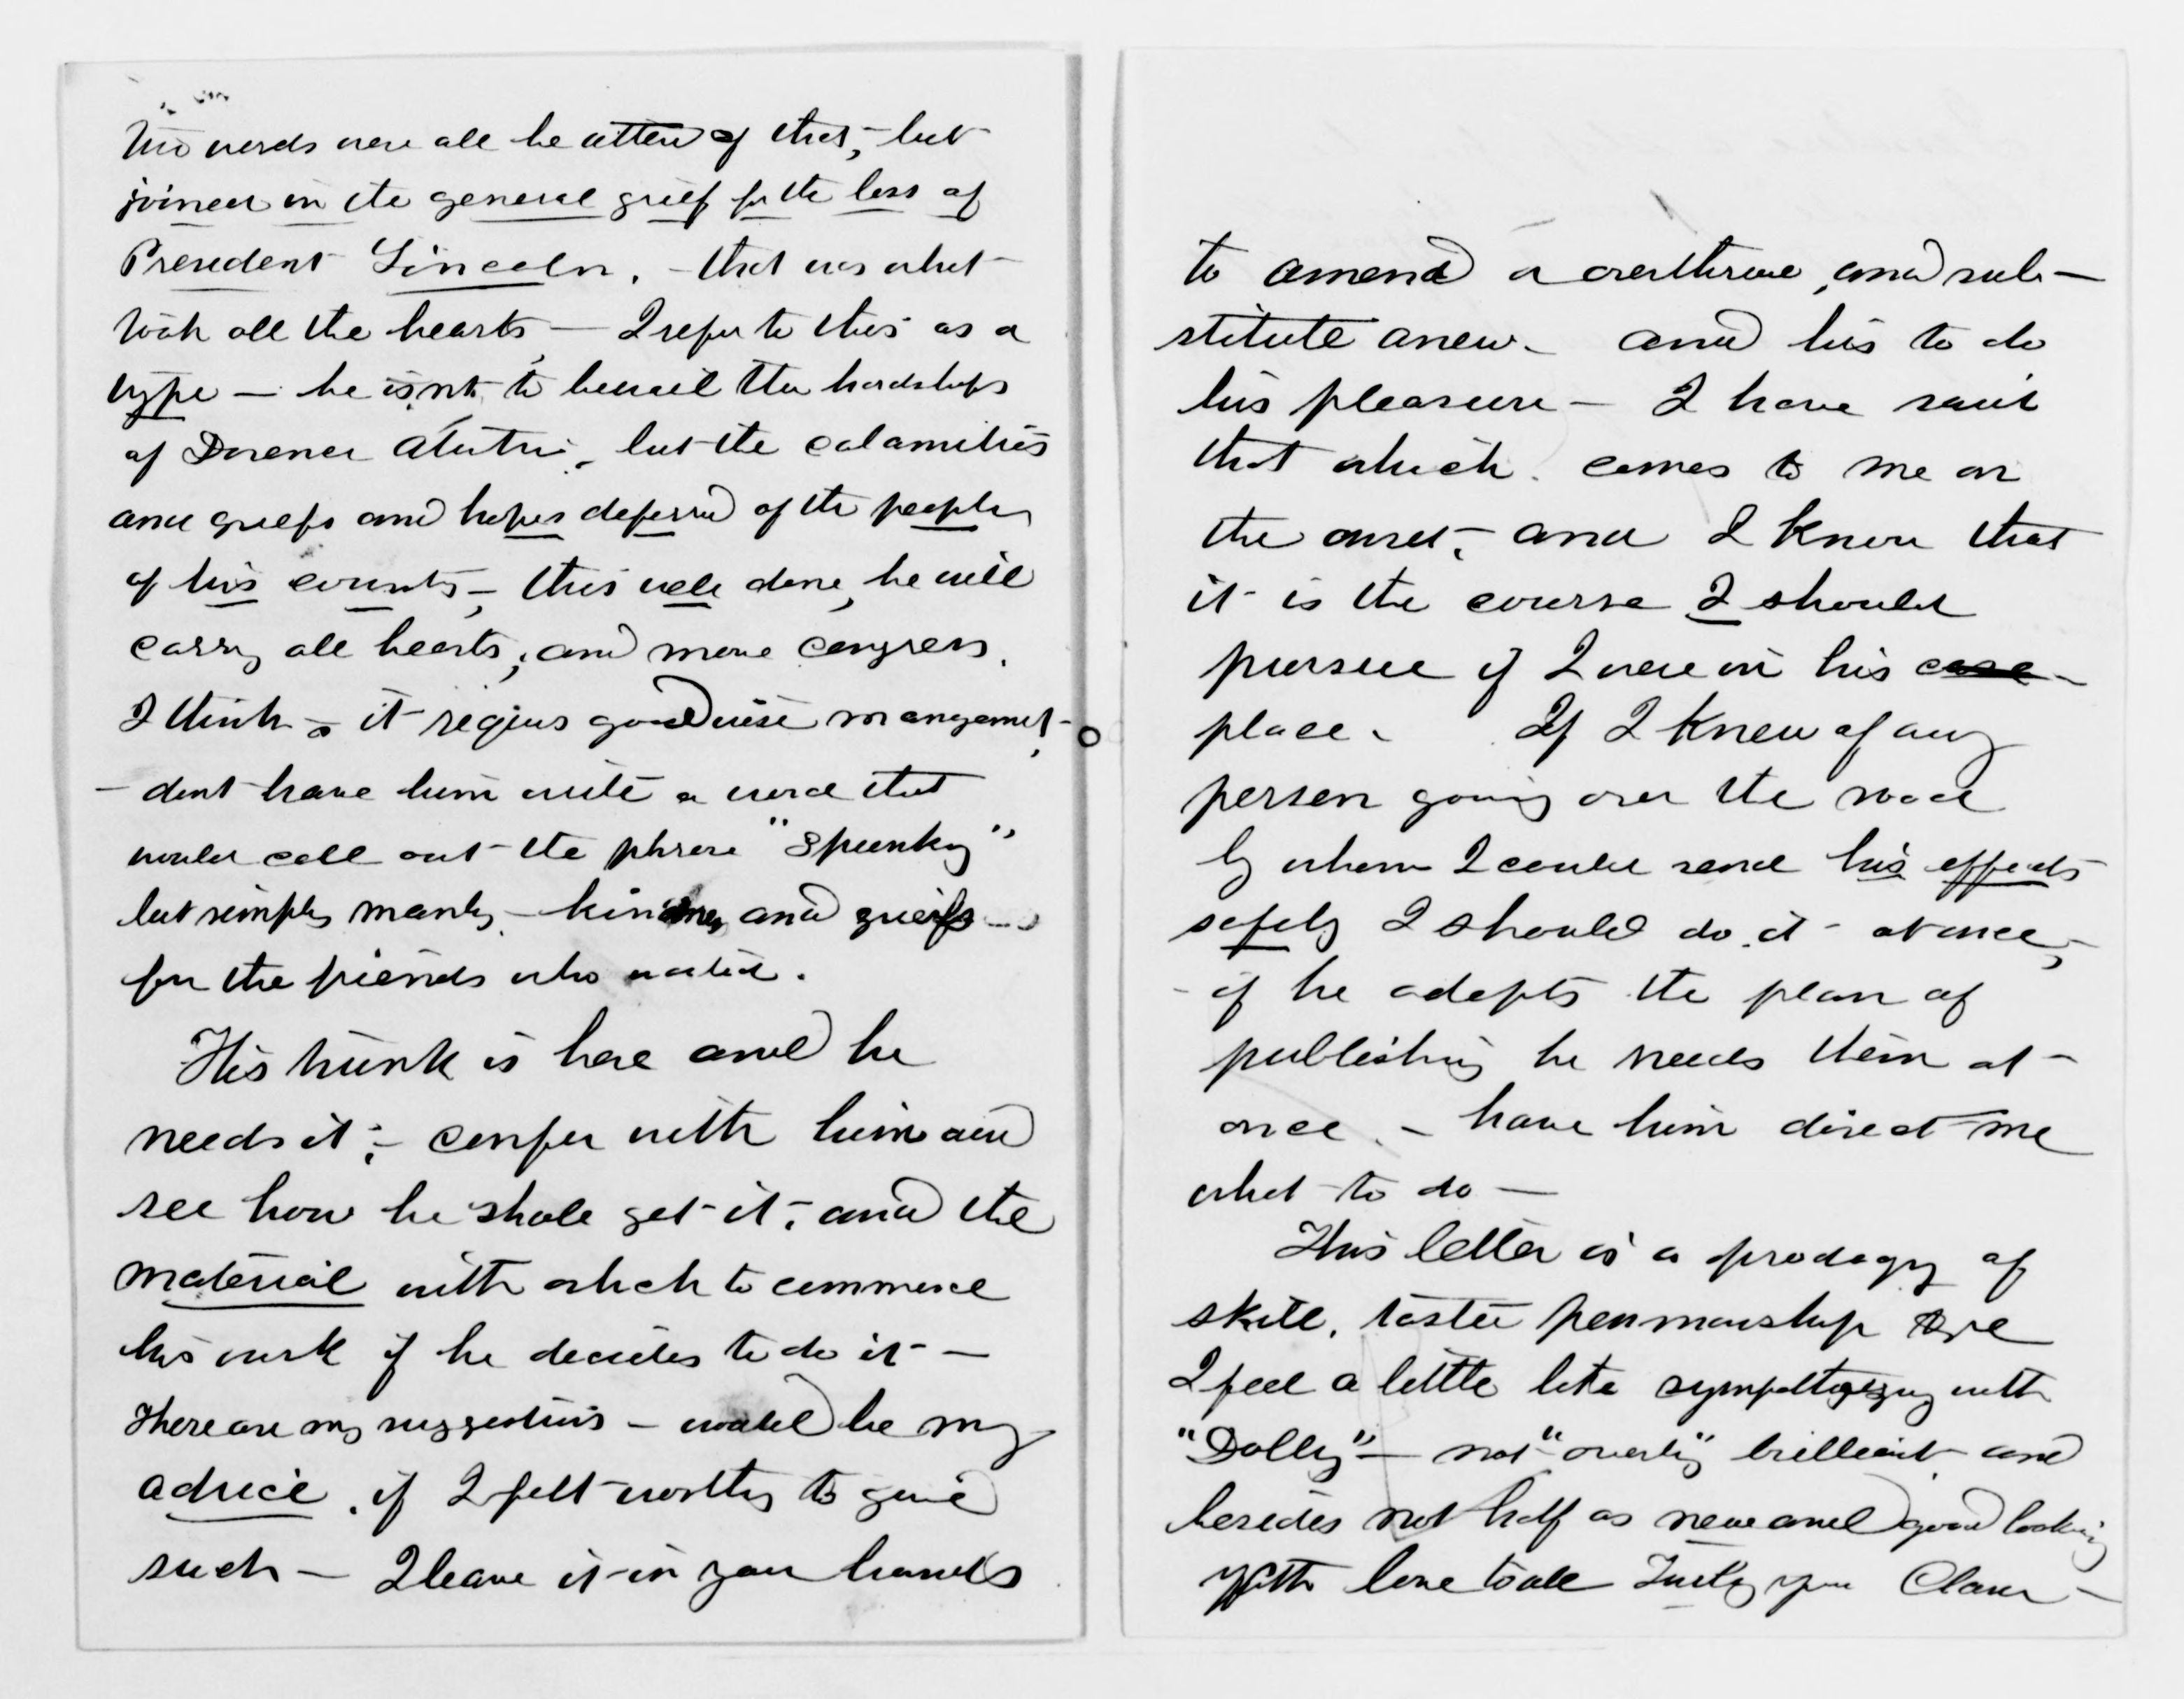 two words were all he uttered of that, - but
joined in the general grief for the loss of
President Lincoln. - that was what
took all the hearts, - I refer to this as a
type - he is not to bewail the hardships
of Dorence Atwater, but the calamities
and griefs and hopes deferred of the people
of his country, - this well done, he will
carry all hearts, and move Congress.
I think - it requires good wise mangement,
- dont have him write a word that
would call out the phrase "Spunky"
but simply manly, - kindness, and griefs
for the friends who waited.
His trunk is here and he
needs it; - confer with him and
see how he shall get it, and the
material with which to commence
his work if he decides to do it -
These are my suggestions - would be my
advice, if I felt worthy to give
such - I leave it in your hands
to amend or overthrow, and sub-
stitute anew - and his to do
his pleasure - I have said
that which comes to me on
the onset, - and I know that
it is the course I should
pursue if I were in his case -
place. If I knew of any
person going over the road
by whom I could send his effects
safely I should do it - at once, -
- if he adopts the plan of
publishing he needs them at -
once. - have him direct me
what to do -
This letter is a prodogy of
skill, taste penmanship &c
I feel a little like sympathizing with
"Dolly" - not "overly" brilliant and
besides not half as new and good looking
With love to all Truly your Clara -